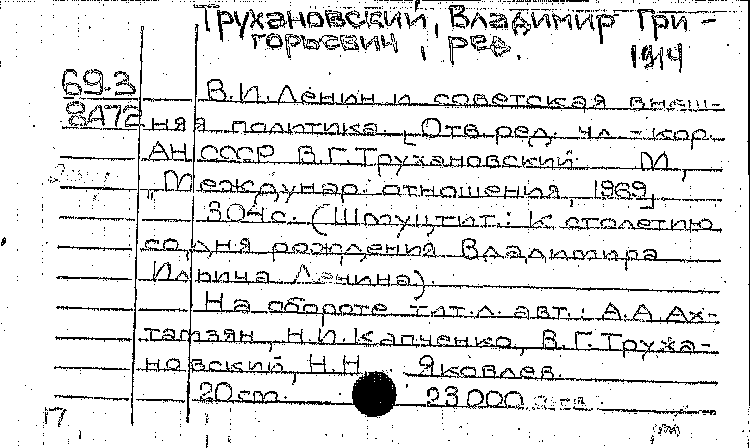 Трухановский, Владимир Гри-
горьевич, ред.
1914
69.3
8А72
В.И.Ленин и советская внеш-
няя политика. [Отв. ред. чл.-кор.
АН СССР В.Г.Трухановский. М.,
"Междунар. отношения, 1969].
304с. (Шмуцтит.: К столетию
со дня рождения Владимира
Ильича Ленина).
На обороте тит.л. авт.: А.А.Ах-
тамзян, Н.И.Капченко, В.Г.Труха-
новский, Н.Н. Яковлев.
20см. 23000 экз.